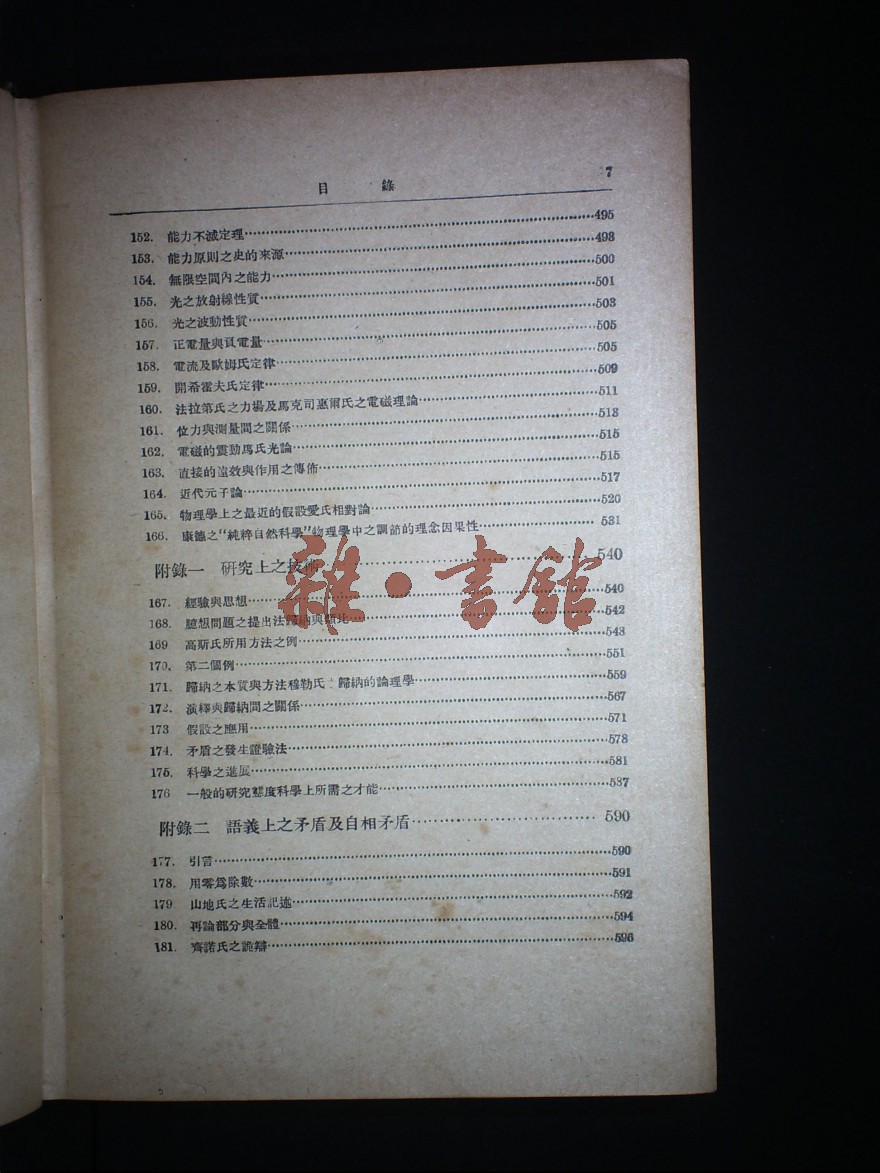 目 錄 7
152. 能力不滅定理 495
153. 能力原則之史的來源 498
154. 無限空間內之能力 500
155. 光之放射線性質 501
156. 光之波動性質 503
157. 正電量與負電量 505
158. 電流及歐姆氏定律 505
159. 開希霍夫氏定律 509
160. 法拉第氏之力場及馬克司惠爾氏之電磁理論 511
161. 位力與測量間之關係 513
162. 電磁的震動馬氏光論 515
163. 直接的遠效與作用之傳佈 515
164. 近代元子論 517
165. 物理學上之最近的假設愛氏相對論 520
166. 康德之“純粹自然科學”物理學中之調節的理念因果性 531
附錄一 研究上之技術 540
167. 經驗與思想 540
168. 臆想問題之提出法歸納與類比 542
169 高斯氏所用方法之例 548
170. 第二個例 551
171. 歸納之本質與方法穆勒氏：歸納的論理學 559
172. 演繹與歸納間之關係 567
173 假設之應用 571
174. 矛盾之發生證驗法 578
175. 科學之進展 581
176 一般的研究態度科學上所需之才能 587
附錄二 語義上之矛盾及自相矛盾 590
177. 引言 590
178. 用零爲除數 591
179 山地氏之生活記述 592
180. 再論部分與全體 594
181. 齊諾氏之詭辯 596
雜·書館